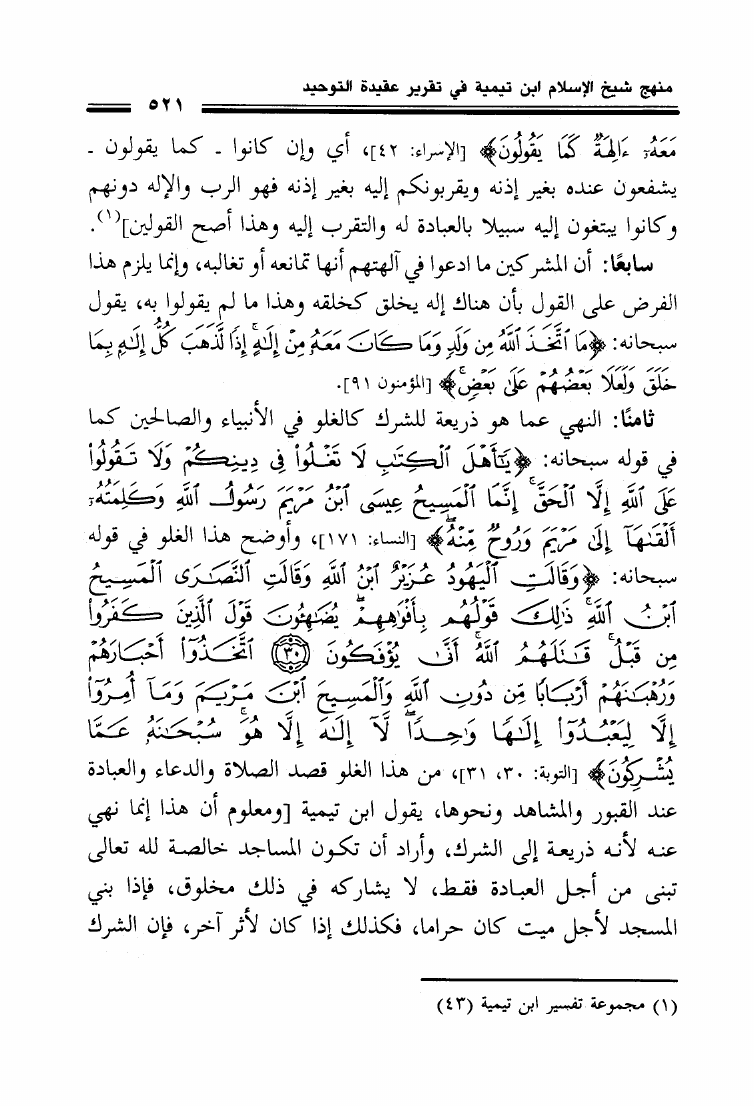 منهج شيخ الإسلام ابن تيمية في تقرير عقيدة التوحيد
٥٢١
مَعَهُۥٓ ءَالِهَةٌ كَمَا يَقُولُونَ﴾ [الإسراء: ٤٢]، أي وإن كانوا ـ كما يقولون ـ
يشفعون عنده بغير إذنه ويقربونكم إليه بغير إذنه فهو الرب والإله دونهم
وكانوا يبتغون إليه سبيلا بالعبادة له والتقرب إليه وهذا أصح القولين](١).
سابعًا: أن المشركين ما ادعوا في آلهتهم أنها تمانعه أو تغالبه، وإنما يلزم هذا
الفرض على القول بأن هناك إله يخلق كخلقه وهذا ما لم يقولوا به، يقول
سبحانه: ﴿مَا ٱتَّخَذَ ٱللَّهُ مِن وَلَدٍ وَمَا كَانَ مَعَهُۥ مِنْ إِلَٰهٍ ۚ إِذًا لَّذَهَبَ كُلُّ إِلَٰهٍۭ بِمَا
خَلَقَ وَلَعَلَا بَعْضُهُمْ عَلَىٰ بَعْضٍ ۚ﴾ [المؤمنون ٩١].
ثامنًا: النهي عما هو ذريعة للشرك كالغلو في الأنبياء والصالحين كما
في قوله سبحانه: ﴿يَٰٓأَهْلَ ٱلْكِتَٰبِ لَا تَغْلُوا۟ فِى دِينِكُمْ وَلَا تَقُولُوا۟
عَلَى ٱللَّهِ إِلَّا ٱلْحَقَّ ۚ إِنَّمَا ٱلْمَسِيحُ عِيسَى ٱبْنُ مَرْيَمَ رَسُولُ ٱللَّهِ وَكَلِمَتُهُۥٓ
أَلْقَىٰهَآ إِلَىٰ مَرْيَمَ وَرُوحٌ مِّنْهُ ۖ﴾ [النساء: ١٧١]، وأوضح هذا الغلو في قوله
سبحانه: ﴿وَقَالَتِ ٱلْيَهُودُ عُزَيْرٌ ٱبْنُ ٱللَّهِ وَقَالَتِ ٱلنَّصَٰرَى ٱلْمَسِيحُ
ٱبْنُ ٱللَّهِ ۖ ذَٰلِكَ قَوْلُهُم بِأَفْوَٰهِهِمْ ۖ يُضَٰهِـُٔونَ قَوْلَ ٱلَّذِينَ كَفَرُوا۟
مِن قَبْلُ ۚ قَٰتَلَهُمُ ٱللَّهُ ۚ أَنَّىٰ يُؤْفَكُونَ ۝٣٠ ٱتَّخَذُوٓا۟ أَحْبَارَهُمْ
وَرُهْبَٰنَهُمْ أَرْبَابًا مِّن دُونِ ٱللَّهِ وَٱلْمَسِيحَ ٱبْنَ مَرْيَمَ وَمَآ أُمِرُوٓا۟
إِلَّا لِيَعْبُدُوٓا۟ إِلَٰهًا وَٰحِدًا ۖ لَّآ إِلَٰهَ إِلَّا هُوَ ۚ سُبْحَٰنَهُۥ عَمَّا
يُشْرِكُونَ﴾ [التوبة: ٣٠، ٣١]، من هذا الغلو قصد الصلاة والدعاء والعبادة
عند القبور والمشاهد ونحوها، يقول ابن تيمية [ومعلوم أن هذا إنما نهي
عنه لأنه ذريعة إلى الشرك، وأراد أن تكون المساجد خالصة لله تعالى
تبنى من أجل العبادة فقط، لا يشاركه في ذلك مخلوق، فإذا بني
المسجد لأجل ميت كان حراما، فكذلك إذا كان لأثر آخر، فإن الشرك
(١) مجموعة تفسير ابن تيمية (٤٣)